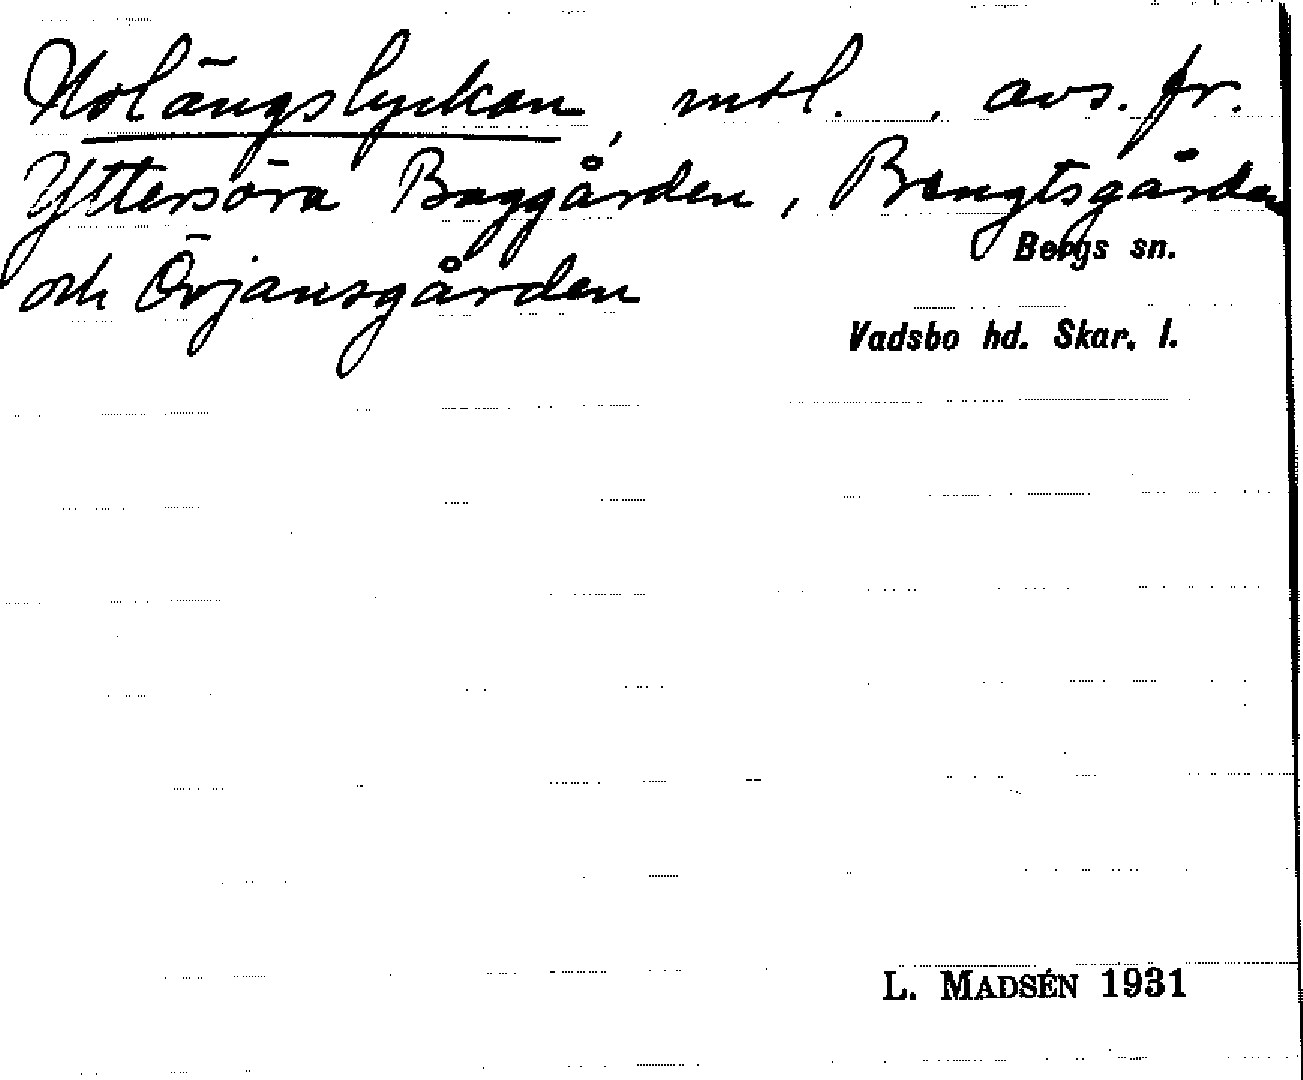 Holängslyckan, mtl. , avs. fr.
Yttersöra Baggården, Bengtsgården
och Örjansgården
Bergs sn.
Vadsbo hd. Skar. l.
L. MADSÉN 1931